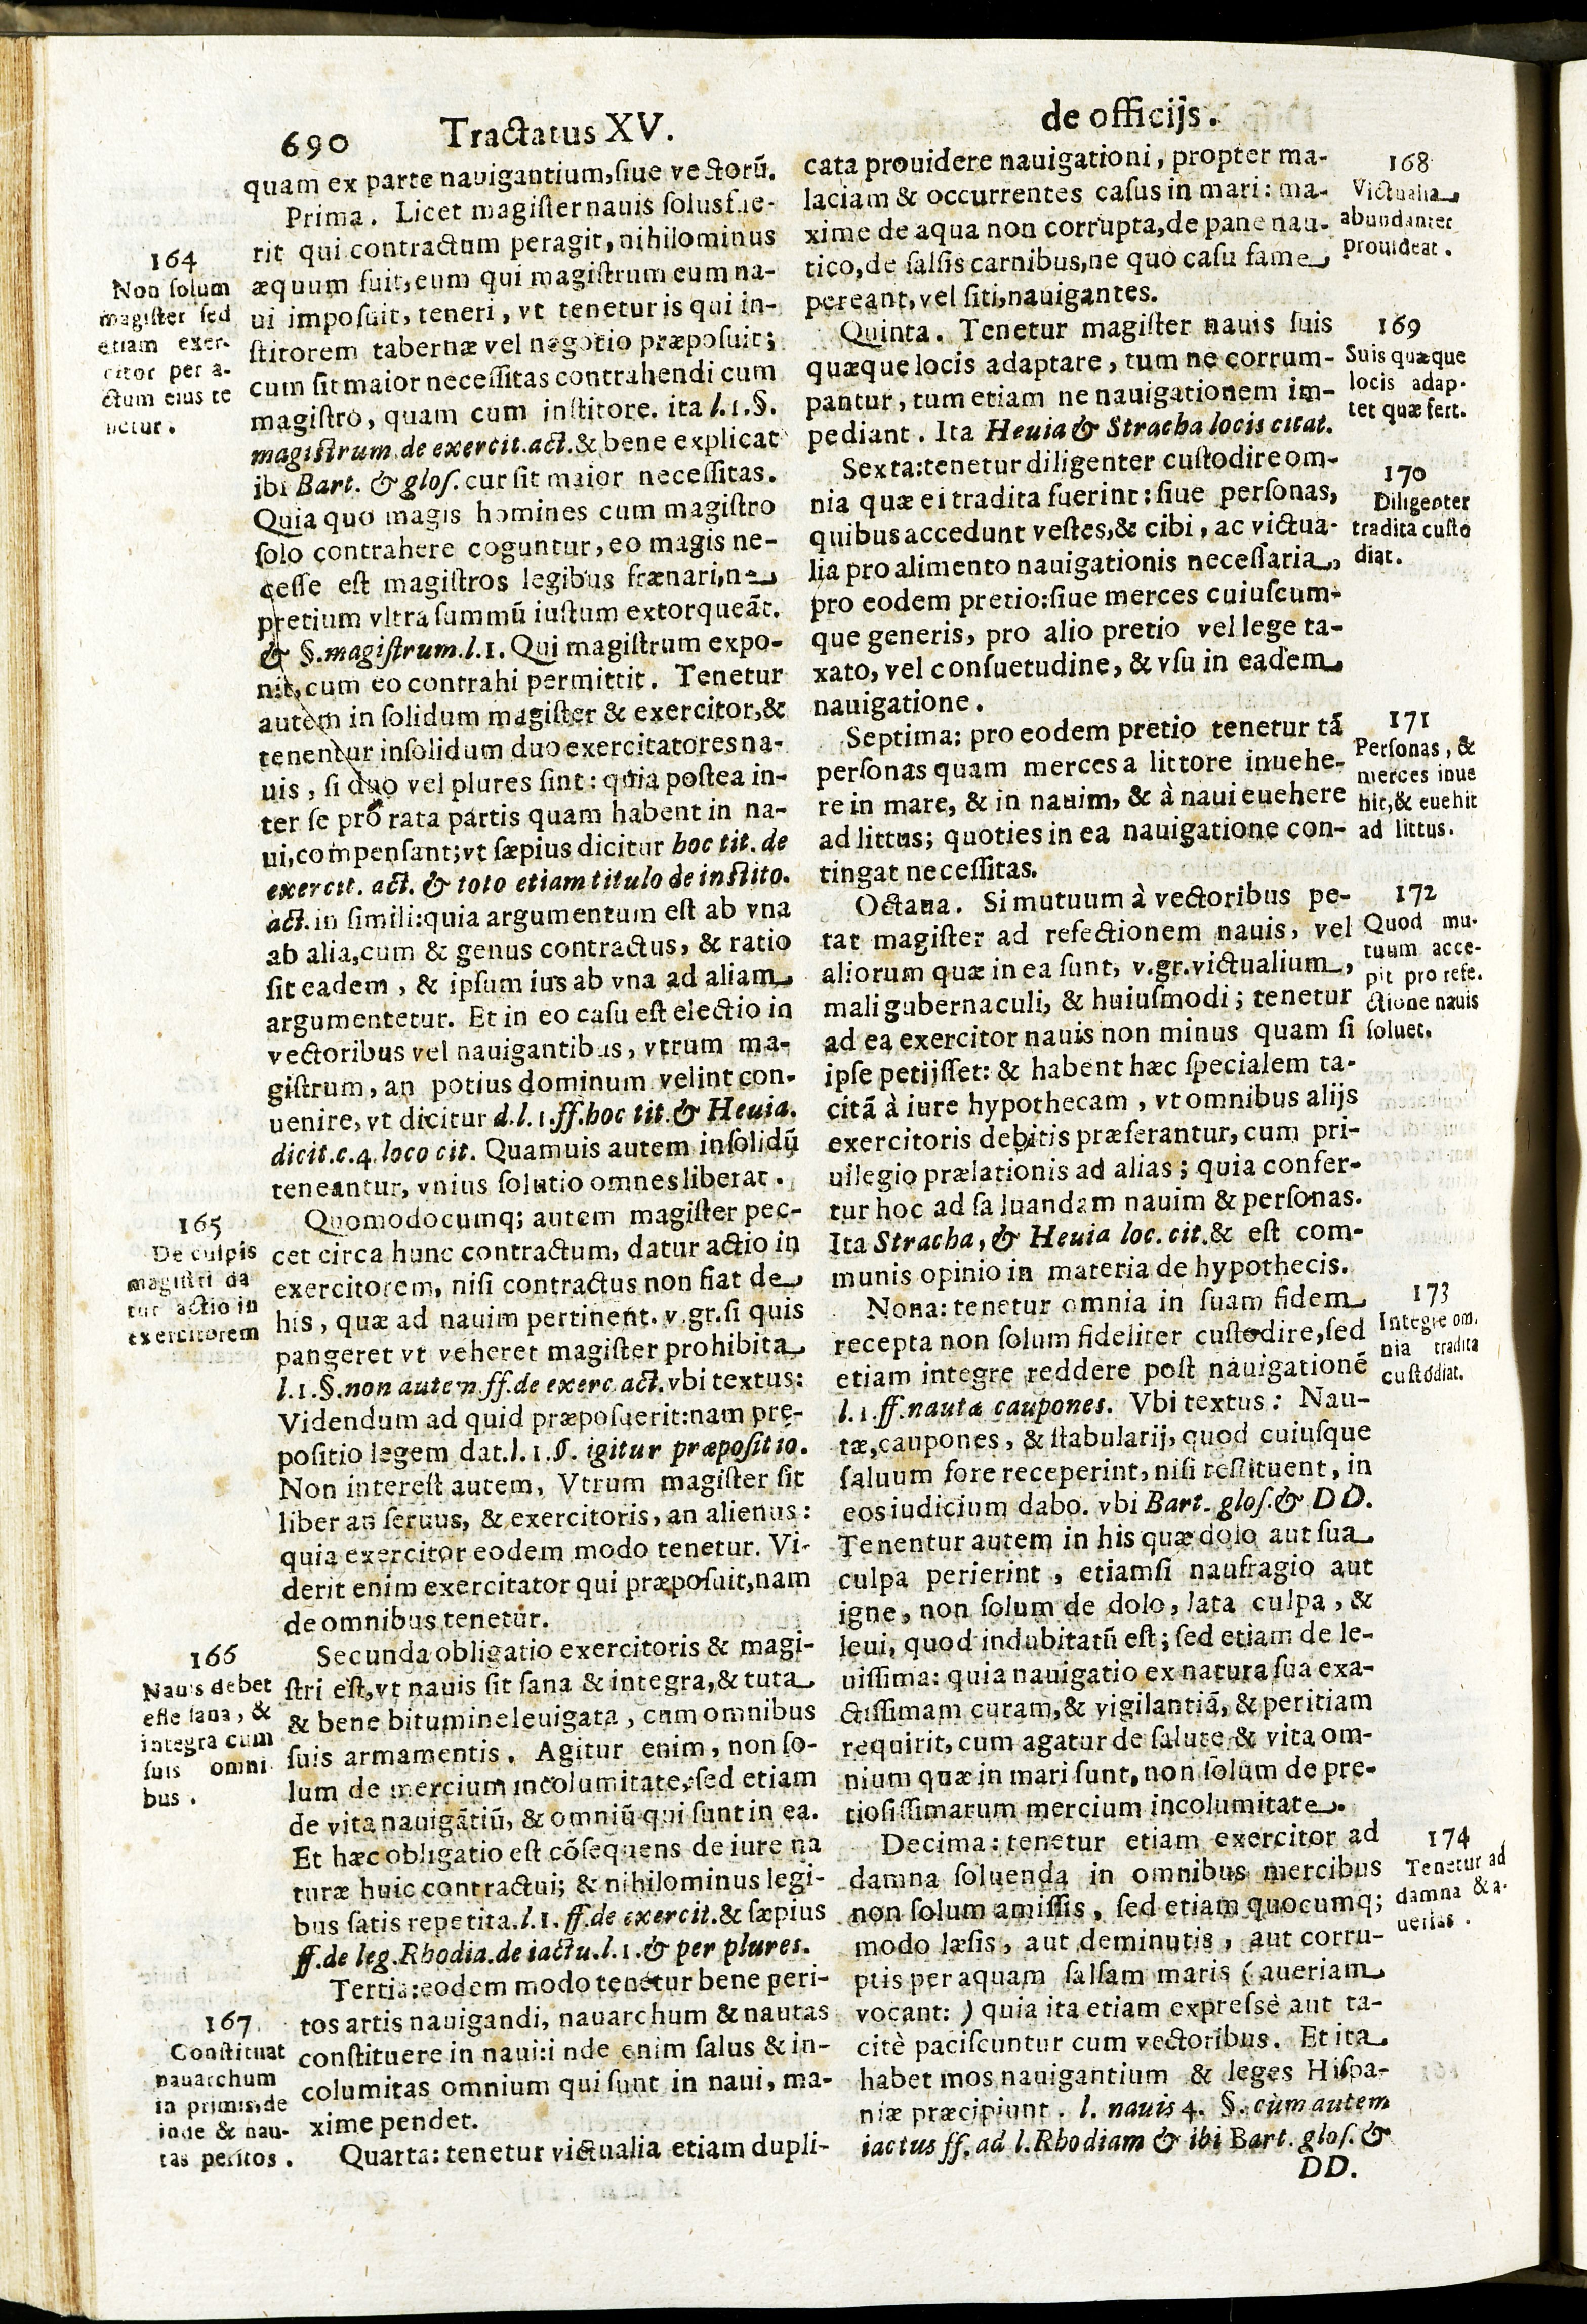 690 Tractatus XV.
quam ex parte nauigantium, ſiue vectorũ.
Prima. Licet magiſter nauis ſolus fue-
rit qui contractum peragit, nihilominus
æquum fuit, eum qui magiſtrum eum na-
ui impoſuit, teneri, vt tenetur is qui in-
ſtitorem tabernæ vel negotio præpoſuit;
cum ſit maior neceſſitas contrahendi cum
magiſtro, quam cum inſtitore. ita l. 1. §.
magiſtrum de exercit. act. & bene explicat
ibi Bart. & gloſ. cur ſit maior neceſſitas.
Quia quo magis homines cum magiſtro
ſolo contrahere coguntur, eo magis ne-
ceſſe eſt magiſtros legibus frænari, ne
pretium vltra ſummũ iuſtum extorqueãt.
& §. magiſtrum. l. 1. Qui magiſtrum expo-
nit, cum eo contrahi permittit. Tenetur
autem in ſolidum magiſter & exercitor, &
tenentur inſolidum duo exercitatores na-
uis, ſi duo vel plures ſint: quia poſtea in-
ter ſe pro rata partis quam habent in na-
ui, compenſant; vt ſæpius dicitur hoc tit. de
exercit. act. & toto etiam titulo de inſtito.
act. in ſimili: quia argumentum eſt ab vna
ab alia, cum & genus contractus, & ratio
ſit eadem, & ipſum ius ab vna ad aliam
argumentetur. Et in eo caſu eſt electio in
vectoribus vel nauigantibus, vtrum ma-
giſtrum, an potius dominum velint con-
uenire, vt dicitur d. l. 1. ff. hoc tit. & Heuia.
dicit. c. 4. loco cit. Quamuis autem inſolidũ
teneantur, vnius ſolutio omnes liberat.
Quomodocumq; autem magiſter pec-
cet circa hunc contractum, datur actio in
exercitorem, niſi contractus non fiat de
his, quæ ad nauim pertinent. v. gr. ſi quis
pangeret vt veheret magiſter prohibita
l. 1. §. non autem ff. de exerc. act. vbi textus:
Videndum ad quid præpoſuerit: nam prę-
poſitio legem dat. l. 1. §. igitur præpoſitio.
Non intereſt autem, Vtrum magiſter ſit
liber an ſeruus, & exercitoris, an alienus:
quia exercitor eodem modo tenetur. Vi-
derit enim exercitator qui præpoſuit, nam
de omnibus tenetur.
Secunda obligatio exercitoris & magi-
ſtri eſt, vt nauis ſit ſana & integra, & tuta
& bene bitumine leuigata, cum omnibus
ſuis armamentis. Agitur enim, non ſo-
lum de mercium incolumitate, ſed etiam
de vita nauigãtiũ, & omniũ qui ſunt in ea.
Et hæc obligatio eſt cõſequens de iure na
turæ huic contractui; & nihilominus legi-
bus ſatis repetita. l. 1. ff. de exercit. & ſæpius
ff. de leg. Rhodia. de iactu. l. 1. & per plures.
Tertia: eodem modo tenetur bene peri-
tos artis nauigandi, nauarchum & nautas
conſtituere in naui: inde enim ſalus & in-
columitas omnium qui ſunt in naui, ma-
xime pendet.
Quarta: tenetur victualia etiam dupli-
164
Non ſolum
magiſter ſed
etiam exer-
citor per a-
ctum eius te
netur.
165
De culpis
magiſtri da
tur actio in
exercitorem
166
Nauis debet
eſſe ſana, &
integra cum
ſuis omni
bus.
167
Conſtituat
nauarchum
in primis, de
inde & nau-
tas peritos.
de officijs.
cata prouidere nauigationi, propter ma-
laciam & occurrentes caſus in mari: ma-
xime de aqua non corrupta, de pane nau-
tico, de ſalſis carnibus, ne quo caſu fame
pereant, vel ſiti, nauigantes.
Quinta. Tenetur magiſter nauis ſuis
quæque locis adaptare, tum ne corrum-
pantur, tum etiam ne nauigationem im-
pediant. Ita Heuia & Stracha locis citat.
Sexta: tenetur diligenter cuſtodire om-
nia quæ ei tradita fuerint: ſiue perſonas,
quibus accedunt veſtes, & cibi, ac victua-
lia pro alimento nauigationis neceſſaria,
pro eodem pretio: ſiue merces cuiuſcum-
que generis, pro alio pretio vel lege ta-
xato, vel conſuetudine, & vſu in eadem
nauigatione.
Septima: pro eodem pretio tenetur tã
perſonas quam merces a littore inuehe-
re in mare, & in nauim, & à naui euehere
ad littus; quoties in ea nauigatione con-
tingat neceſſitas.
Octaua. Si mutuum à vectoribus pe-
tat magiſter ad refectionem nauis, vel
aliorum quæ in ea ſunt, v. gr. victualium,
mali gubernaculi, & huiuſmodi; tenetur
ad ea exercitor nauis non minus quam ſi
ipſe petijſſet: & habent hæc ſpecialem ta-
citã à iure hypothecam, vt omnibus alijs
exercitoris debitis præferantur, cum pri-
uilegio prælationis ad alias; quia confer-
tur hoc ad ſaluandam nauim & perſonas.
Ita Stracha, & Heuia loc. cit. & eſt com-
munis opinio in materia de hypothecis.
Nona: tenetur omnia in ſuam fidem
recepta non ſolum fideliter cuſtodire, ſed
etiam integre reddere poſt nauigationẽ
l. 1. ff. nautæ caupones. Vbi textus: Nau-
tæ, caupones, & ſtabularij, quod cuiuſque
ſaluum fore receperint, niſi reſtituent, in
eos iudicium dabo. vbi Bart. gloſ. & DD.
Tenentur autem in his quæ dolo aut ſua
culpa perierint, etiamſi naufragio aut
igne, non ſolum de dolo, lata culpa, &
leui, quod indubitatũ eſt; ſed etiam de le-
uiſſima: quia nauigatio ex natura ſua exa-
ctiſſimam curam, & vigilantiã, & peritiam
requirit, cum agatur de ſalute & vita om-
nium quæ in mari ſunt, non ſolum de pre-
tioſiſſimarum mercium incolumitate.
Decima: tenetur etiam exercitor ad
damna ſoluenda in omnibus mercibus
non ſolum amiſſis, ſed etiam quocumq;
modo læſis, aut deminutis, aut corru-
ptis per aquam ſalſam maris (aueriam
vocant:) quia ita etiam expreſsè aut ta-
citè paciſcuntur cum vectoribus. Et ita
habet mos nauigantium & leges Hiſpa-
niæ præcipiunt. l. nauis 4. §. cùm autem
iactus ff. ad l. Rhodiam & ibi Bart. gloſ. &
DD.
168
Victualia
abundanter
prouideat.
169
Suis quæque
locis adap-
tet quæ fert.
170
Diligenter
tradita cuſto
diat.
171
Perſonas, &
merces inue
hit, & euehit
ad littus.
172
Quod mu-
tuum acce-
pit pro refe-
ctione nauis
ſoluet.
173
Integre om-
nia tradita
cuſtodiat.
174
Tenetur ad
damna & a-
uerias.